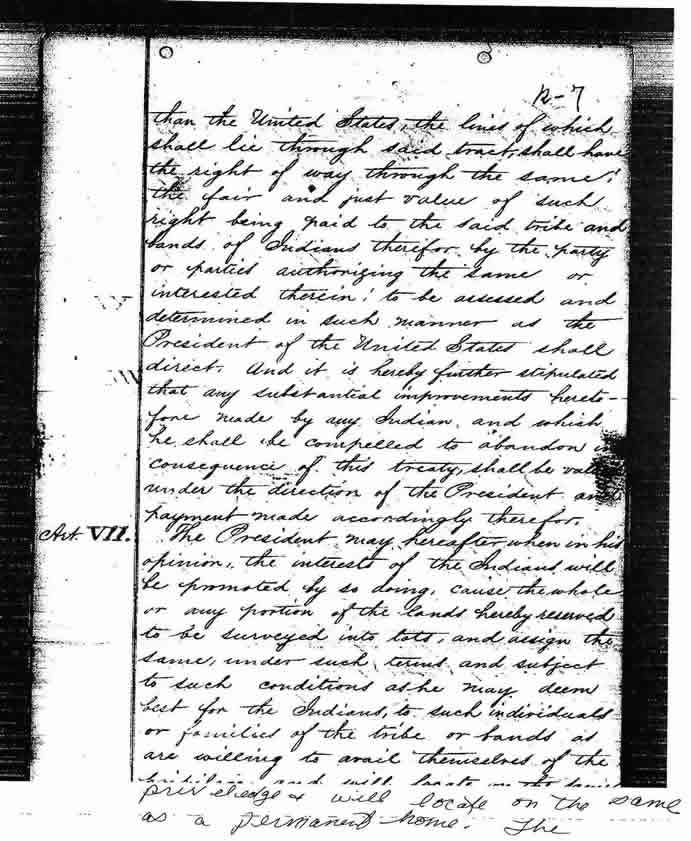 12-7
than the United States, the lines of which
shall lie through said tract, shall have
the right of way through the same;
the fair and just value of such
right being paid to the said tribe and
bands of Indians therefor by the party
or parties authorizing the same or
interested therein; to be assessed and
determined in such manner as the
President of the United States shall
direct. And it is hereby further stipulated
that any substantial improvements hereto-
fore made by any Indian, and which
he shall be compelled to abandon in
consequence of this treaty, shall be valu
under the direction of the President and
payment made accordingly therefor.
Art. VII.
The President may hereafter when in his
opinion, the interests of the Indians will
be promoted by so doing, cause the whole
or any portion of the lands hereby reserved
to be surveyed into lots, and assign the
same, under such terms and subject
to such conditions as he may deem
best for the Indians, to such individuals
or families of the tribe or bands as
are willing to avail themselves of the
priveledge & will locate on the same
as a permanent home. The